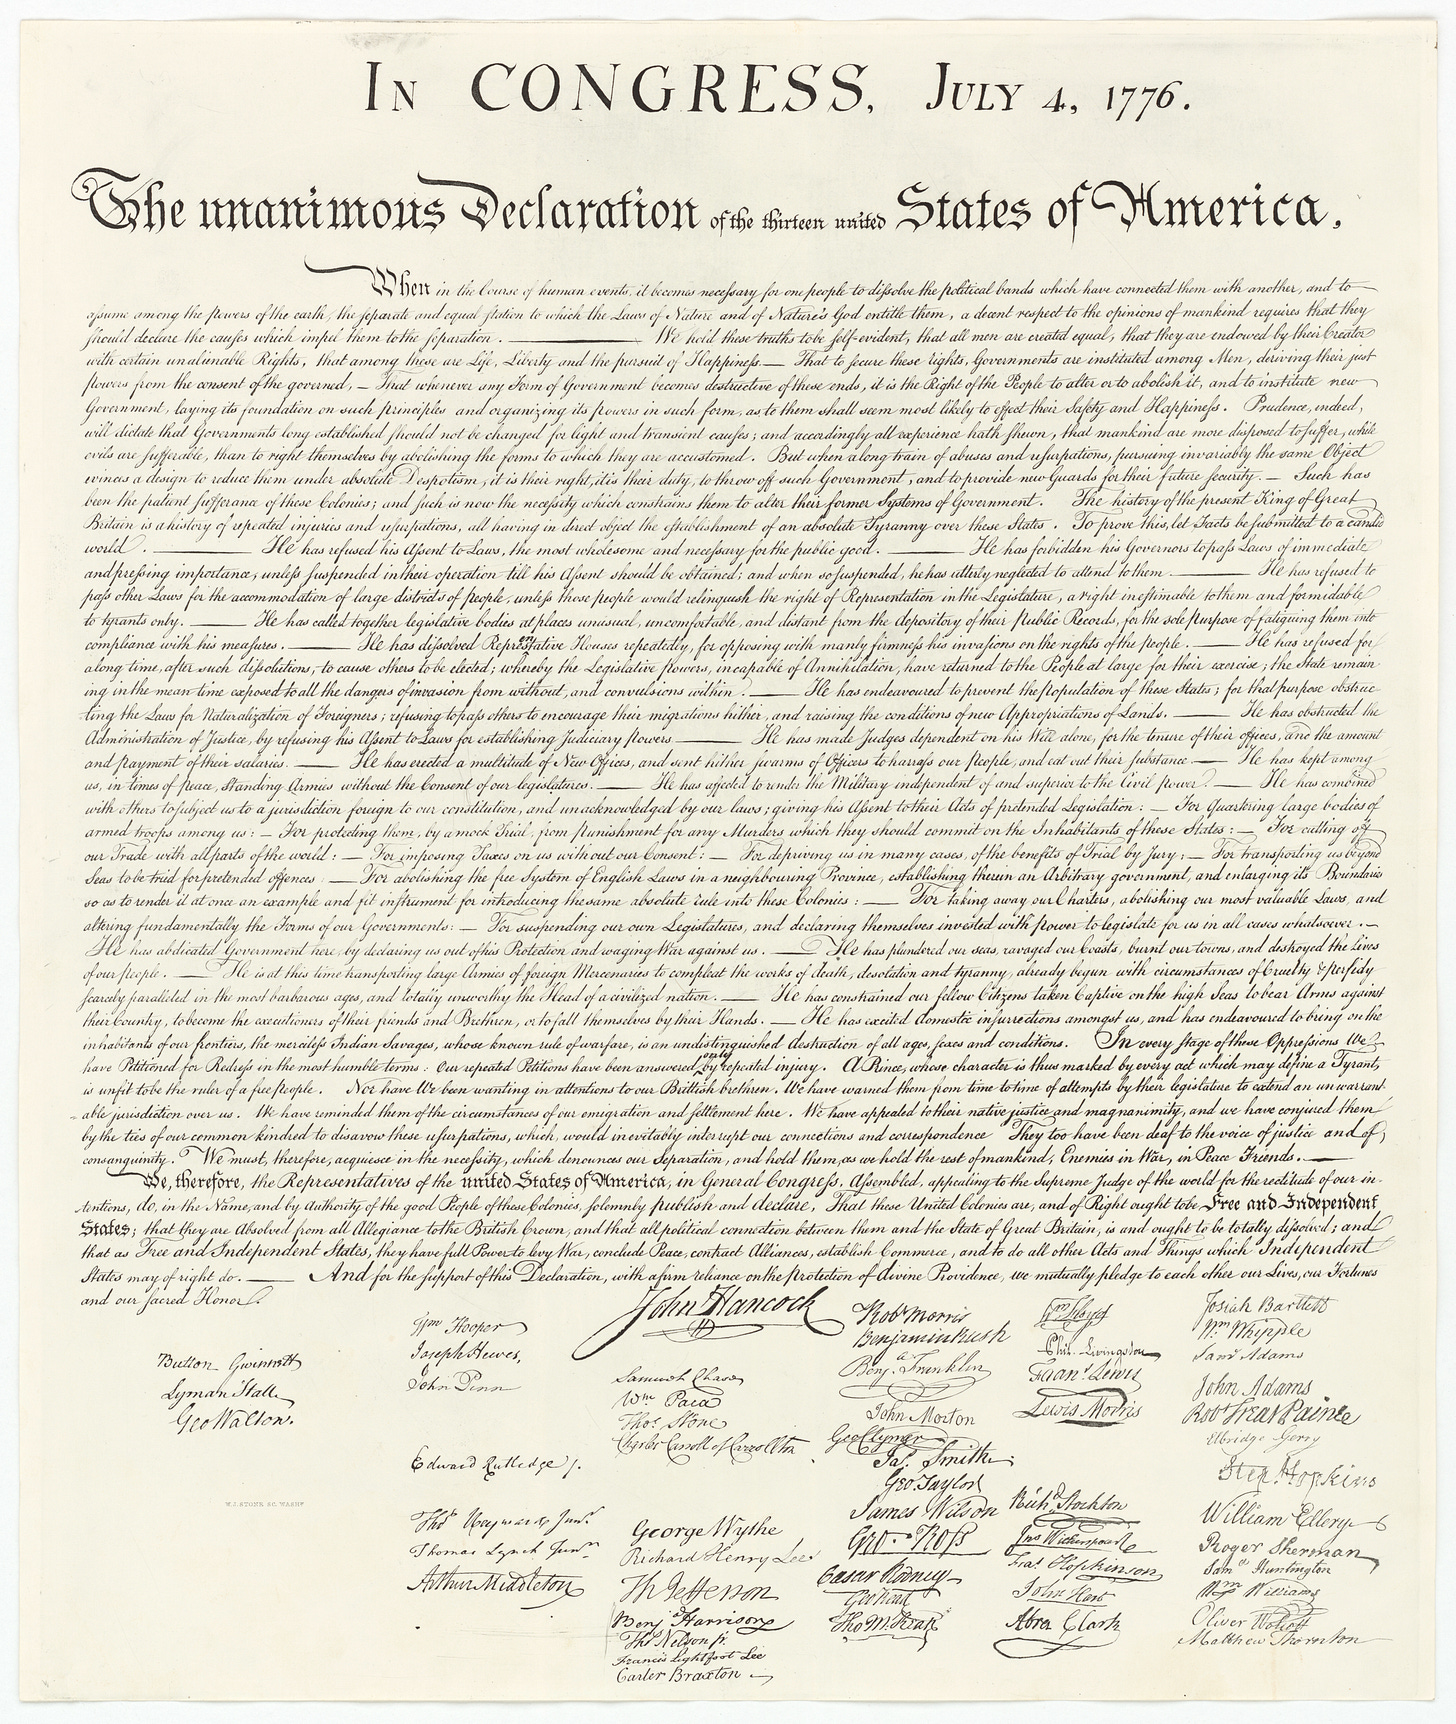 In CONGRESS, July 4, 1776.
The unanimous Declaration of the thirteen united States of America,
When in the Course of human events, it becomes necessary for one people to dissolve the political bands which have connected them with another, and to
assume among the powers of the earth, the separate and equal station to which the Laws of Nature and of Nature's God entitle them, a decent respect to the opinions of mankind requires that they
should declare the causes which impel them to the separation. ——— We hold these truths to be self-evident, that all men are created equal, that they are endowed by their Creator
with certain unalienable Rights, that among these are Life, Liberty and the pursuit of Happiness.— That to secure these rights, Governments are instituted among Men, deriving their just
powers from the consent of the governed, — That whenever any Form of Government becomes destructive of these ends, it is the Right of the People to alter or to abolish it, and to institute new
Government, laying its foundation on such principles and organizing its powers in such form, as to them shall seem most likely to effect their Safety and Happiness. Prudence, indeed,
will dictate that Governments long established should not be changed for light and transient causes; and accordingly all experience hath shewn, that mankind are more disposed to suffer, while
evils are sufferable, than to right themselves by abolishing the forms to which they are accustomed. But when a long train of abuses and usurpations, pursuing invariably the same Object
evinces a design to reduce them under absolute Despotism, it is their right, it is their duty, to throw off such Government, and to provide new Guards for their future security. — Such has
been the patient sufferance of these Colonies; and such is now the necessity which constrains them to alter their former Systems of Government. The history of the present King of Great
Britain is a history of repeated injuries and usurpations, all having in direct object the establishment of an absolute Tyranny over these States. To prove this, let Facts be submitted to a candid
world. ——— He has refused his Assent to Laws, the most wholesome and necessary for the public good. ——— He has forbidden his Governors to pass Laws of immediate
and pressing importance, unless suspended in their operation till his Assent should be obtained; and when so suspended, he has utterly neglected to attend to them. ——— He has refused to
pass other Laws for the accommodation of large districts of people, unless those people would relinquish the right of Representation in the Legislature, a right inestimable to them and formidable
to tyrants only. ——— He has called together legislative bodies at places unusual, uncomfortable, and distant from the depository of their public Records, for the sole purpose of fatiguing them into
compliance with his measures. ——— He has dissolved Representative Houses repeatedly, for opposing with manly firmness his invasions on the rights of the people. ——— He has refused for
a long time, after such dissolutions, to cause others to be elected; whereby the Legislative powers, incapable of Annihilation, have returned to the People at large for their exercise; the State remain-
ing in the mean time exposed to all the dangers of invasion from without, and convulsions within. ——— He has endeavoured to prevent the population of these States; for that purpose obstruc-
ting the Laws for Naturalization of Foreigners; refusing to pass others to encourage their migrations hither, and raising the conditions of new Appropriations of Lands. ——— He has obstructed the
Administration of Justice, by refusing his Assent to Laws for establishing Judiciary powers ——— He has made Judges dependent on his Will alone, for the tenure of their offices, and the amount
and payment of their salaries. ——— He has erected a multitude of New Offices, and sent hither swarms of Officers to harrass our people, and eat out their substance — He has kept among
us, in times of peace, Standing Armies without the Consent of our legislatures. ——— He has affected to render the Military independent of and superior to the Civil power. ——— He has combined
with others to subject us to a jurisdiction foreign to our constitution, and unacknowledged by our laws; giving his Assent to their Acts of pretended Legislation: — For Quartering large bodies of
armed troops among us: — For protecting them, by a mock Trial, from punishment for any Murders which they should commit on the Inhabitants of these States: — For cutting off
our Trade with all parts of the world: — For imposing Taxes on us without our Consent: — For depriving us in many cases, of the benefits of Trial by Jury: — For transporting us beyond
Seas to be tried for pretended offences — For abolishing the free System of English Laws in a neighbouring Province, establishing therein an Arbitrary government, and enlarging its Boundaries
so as to render it at once an example and fit instrument for introducing the same absolute rule into these Colonies: — For taking away our Charters, abolishing our most valuable Laws, and
altering fundamentally the Forms of our Governments: — For suspending our own Legislatures, and declaring themselves invested with power to legislate for us in all cases whatsoever. —
He has abdicated Government here, by declaring us out of his Protection and waging War against us. ——— He has plundered our seas, ravaged our Coasts, burnt our towns, and destroyed the lives
of our people. ——— He is at this time transporting large Armies of foreign Mercenaries to compleat the works of death, desolation and tyranny, already begun with circumstances of Cruelty & perfidy
scarcely paralleled in the most barbarous ages, and totally unworthy the Head of a civilized nation. ——— He has constrained our fellow Citizens taken Captive on the high Seas to bear Arms against
their Country, to become the executioners of their friends and Brethren, or to fall themselves by their Hands. — He has excited domestic insurrections amongst us, and has endeavoured to bring on the
inhabitants of our frontiers, the merciless Indian Savages, whose known rule of warfare, is an undistinguished destruction of all ages, sexes and conditions. In every stage of these Oppressions We
have Petitioned for Redress in the most humble terms: Our repeated Petitions have been answered only by repeated injury. A Prince, whose character is thus marked by every act which may define a Tyrant,
is unfit to be the ruler of a free people. Nor have We been wanting in attentions to our Brittish brethren. We have warned them from time to time of attempts by their legislature to extend an unwarrant-
able jurisdiction over us. We have reminded them of the circumstances of our emigration and settlement here. We have appealed to their native justice and magnanimity, and we have conjured them
by the ties of our common kindred to disavow these usurpations, which, would inevitably interrupt our connections and correspondence They too have been deaf to the voice of justice and of
consanguinity. We must, therefore, acquiesce in the necessity, which denounces our Separation, and hold them, as we hold the rest of mankind, Enemies in War, in Peace Friends. ———
We, therefore, the Representatives of the united States of America, in General Congress, Assembled, appealing to the Supreme Judge of the world for the rectitude of our in-
tentions, do, in the Name, and by Authority of the good People of these Colonies, solemnly publish and declare, That these United Colonies are, and of Right ought to be Free and Independent
States; that they are Absolved from all Allegiance to the British Crown, and that all political connection between them and the State of Great Britain, is and ought to be totally dissolved; and
that as Free and Independent States, they have full Power to levy War, conclude Peace, contract Alliances, establish Commerce, and to do all other Acts and Things which Independent
States may of right do. ——— And for the support of this Declaration, with a firm reliance on the protection of divine Providence, we mutually pledge to each other our Lives, our Fortunes
and our sacred Honor.
Button Gwinnett
Lyman Hall
Geo Walton.
W.J. STONE SC. WASHN
Wm Hooper
Joseph Hewes,
John Penn
Edward Rutledge /.
Thos Heyward Junr.
Thomas Lynch Junr.
Arthur Middleton
John Hancock
Samuel Chase
Wm Paca
Thos. Stone
Charles Carroll of Carrollton
George Wythe
Richard Henry Lee
Th Jefferson
Benja Harrison
Thos Nelson jr.
Francis Lightfoot Lee
Carter Braxton
Robt Morris
Benjamin Rush
Benja. Franklin
John Morton
Geo Clymer
Jas. Smith.
Geo. Taylor
James Wilson
Geo. Ross
Caesar Rodney
Geo Read
Tho M:Kean
Wm Floyd
Phil. Livingston
Frans. Lewis
Lewis Morris
Richd. Stockton
Jno Witherspoon
Fras. Hopkinson
John Hart
Abra Clark
Josiah Bartlett
Wm Whipple
Saml Adams
John Adams
Robt Treat Paine
Elbridge Gerry
Step. Hopkins
William Ellery
Roger Sherman
Saml Huntington
Wm Williams
Oliver Wolcott
Matthew Thornton